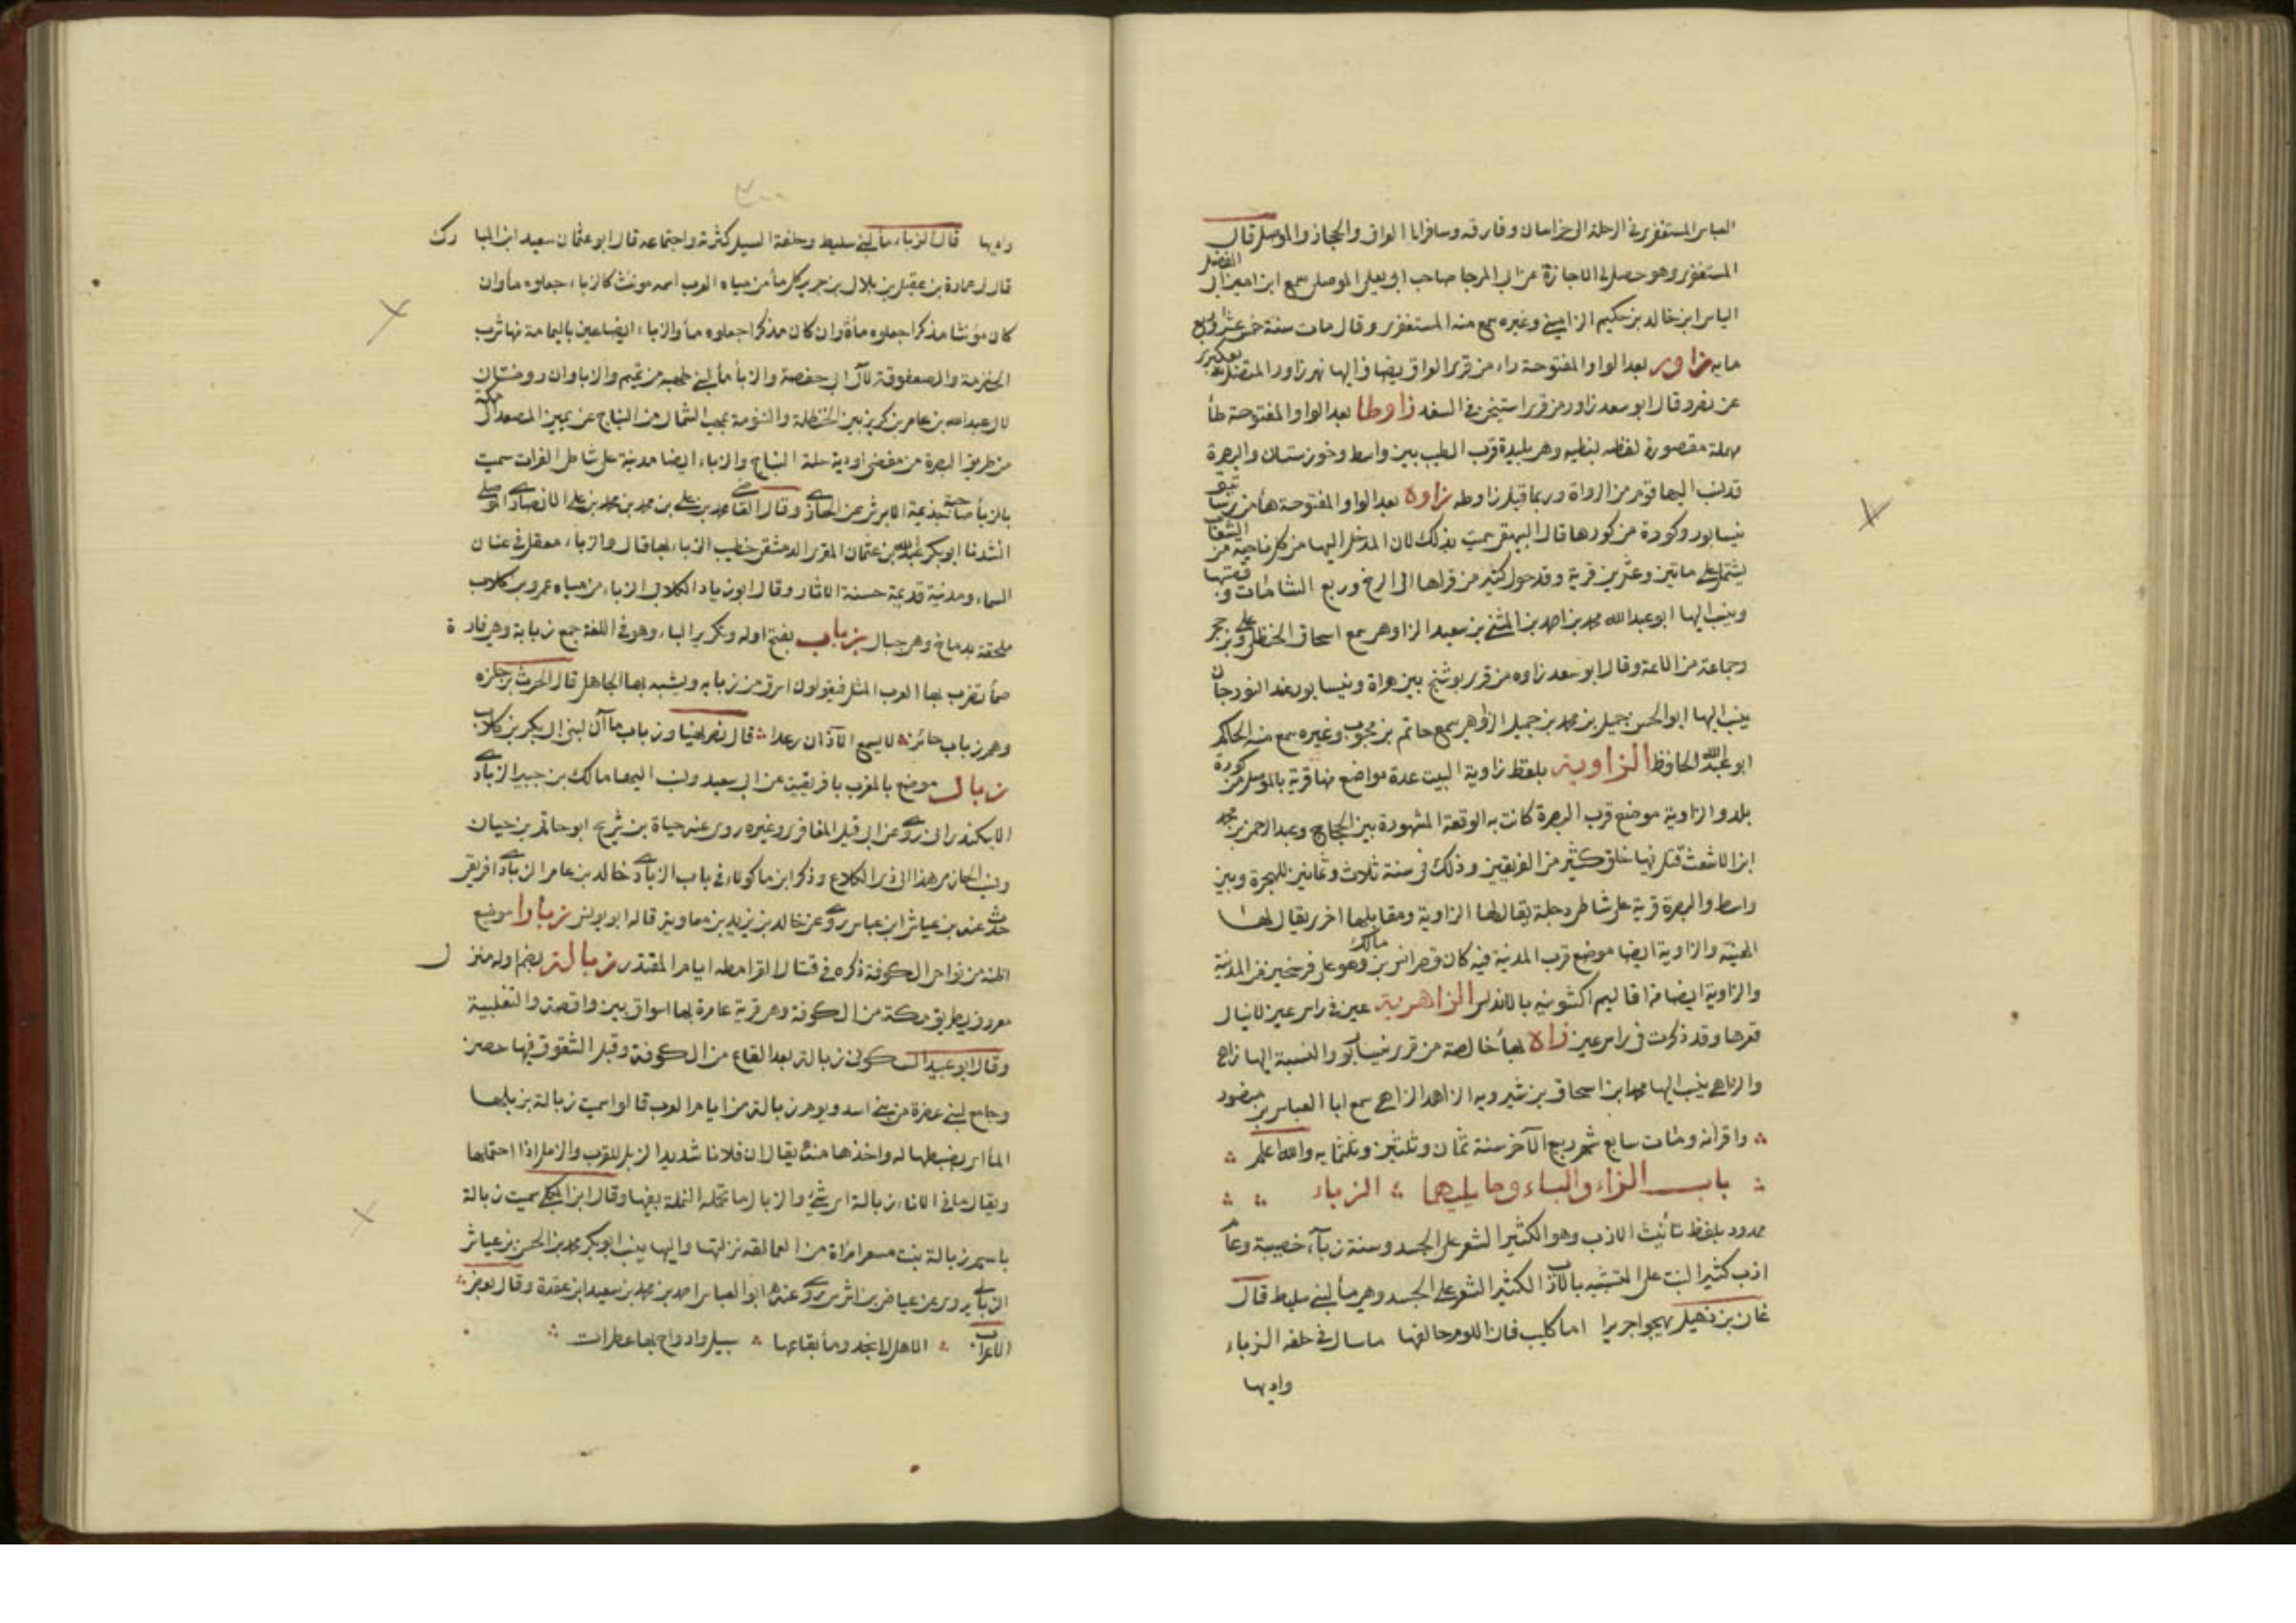 العباس المستغفري في الرحلة الى خراسان وفارقه وسافرانا العراق والحجاز والموصل قال
المستغفري وهو حصل لي الاجازة عن ابي المرجا صاحب ابي يعلى الموصلي سمع ابن اميرال الفضل
الياس ابن خالد بن حكيم الزاميني وغيره سمع منه المستغفري وقال مات سنة خمس عشرة واربع
مايه زاور بعد الواو المفتوحة راء من قرى العراق يضاف اليها نهر زاور المتصل بعكبرا
عن نصر وقال ابو سعد زاور من قرى استيخن في السغد زاوطا بعد الواو المفتوحة طأ
مهملة مقصورة لفظه نبطيه وهي بليدة قرب الطيب بين واسط وخوزستان والبصرة
قد نسب اليها قوم من الرواة وربما قيل زاوطه زاوه بعد الواو المفتوحة هأ من رساتيق
نيسابور وكورة من كورها قال البيهقي سميت بذلك لان المدخل اليها من كل ناحية من الشعاب
يشتمل على مائتين وعشرين قرية وقد حول كثير من قراها الى الرخ وربع الشامات وقصبتها
وينسب اليها ابو عبد الله محمد بن احمد بن المثنى بن سعيد الزاوهي سمع اسحاق الحنظلي وعلي بن حجر
وجماعة من الائمة وقال ابو سعد زاوه من قرى بوشنج بين هراة ونيسابور عند النورجان
ينسب اليها ابو الحسن جميل بن محمد بن جميل الزاوهي سمع حاتم بن محبوب وغيره سمع منه الحاكم
ابو عبد الله الحافظ الزاوية بلفظ زاوية البيت عدة مواضع منها قرية بالموصل من كورة
بلد والزاوية موضع قرب البصرة كانت به الوقعة المشهورة بين الحجاج وعبد الرحمن بن محمد
ابن الاشعث قتل فيها خلق كثير من الفريقين وذلك في سنة ثلاث وثمانين للهجرة وبين
واسط والبصرة قرية على شاطى دجلة يقال لها الزاوية ومقابلها اخرى يقال لها
الهنيئة والزاوية ايضا موضع قرب المدينة فيه كان قصر انس بن مالك وهو على فرسخين من المدينة
والزاوية ايضا من اقاليم اكشونيه بالاندلس الزاهرية عين في راس عين لا ينال
قعرها وقد ذكرت في راس عين زاه بهأ خالصة من قرى نيسابور والنسبة اليها زاهي
والزاهي ينسب اليها محمد ابن اسحاق بن شيرويه الزاهد الزاهي سمع ابا العباس بن منصور
واقرانه ومات سابع شهر ربيع الآخر سنة ثمان وثلثين وثلثمايه والله اعلم
باب الزاء والباء وما يليهما الزباء
ممدود بلفظ تأنيث الازب وهو الكثير الشعر على الجسد وسنة زبآء خصيبة وعام
ازب كثير النبت على التشبيه بالازب الكثير الشعر على الجسد وهي مأ لبني سليط قال
غسان بن ذهيل يهجو جريرا اما كليب فان اللوم حالفها ما سال في حلفه الزباء
واديها
واديها قال الزباء مأ لبني سليط وحلفة السيل كثرته واجتماعه قال ابو عثمان سعيد ابن المبارك
قال لي عمارة بن عقيل بن بلال بن جرير كل مأ من مياه العرب اسمه مونث كالزباء جعلوه مأ وان
كان مؤنثا مذكرا جعلوه مأة وان كان مذكرا جعلوه مأ والزباء ايضا عين باليمامة منها شرب
الخضرمة والصعفوقة لآل ابي حفصة والزبأ مأ لبني طهيه من تميم والزباوان روضتان
لال عبد الله بن عامر بن كريز بين الحنظلة والتنومة بمهب الشمال من النباج عن يمين المصعد الى مكة
من طريق البصرة من مفضى اودية حلة النباج والزباء ايضا مدينة على شاطى الفرات سميت
بالزبأ صاحبة جذيمة الابرش عن الحازمي وقال القاضي محمد بن علي بن محمد بن محمد بن علي الانصاري الموصلي
انشدنا ابو بكر عبد الله بن عثمان المقري الدمشقي خطيب الزباء بها قال والزباء معقل في عنان
السماء ومدينة قديمة حسنة الاثار وقال ابو زياد الكلابي الزباء من مياه عمرو بن كلاب
ملحقة بدماغ وهي جبال زباب بفتح اوله وتكرير الباء وهو في اللغة جمع زبابة وهي فارة
صمأ تضرب بها العرب المثل فيقولون اسرق من زبابه ويشبه بها الجاهل قال الحرث بن حلزه
وهم زباب حائر لا يسمع الآذان رعدا قال نصر نهيا وزباب ماآن لبني ابي بكر بن كلاب
زبال موضع بالمغرب بافريقيه عن ابي سعيد ونسب اليها مالك بن جبير الزبادي
الاسكندراني روى عن ابي قبيل المغافري وغيره روى عنه حياة بن شريح ابو حاتم بن حيان
ونسب الحازمي هذا الى ذي الكلاع وذكر ابن ماكولا في باب الزبادي خالد بن عامر الزبادي افريقي
حدث عنه بن عياش ابن عباس روى عن خالد بن يزيد بن معاوية قاله ابو يونس زباوا موضع
اظنه من نواحي الكوفة ذكره في قتال القرامطه ايام المقتدر زبالة بضم اوله منزل
معروف بطريق مكة من الكوفة وهي قرية عامرة بها اسواق بين واقصة والثعلبية
وقال ابو عبيد السكوني زبالة بعد القاع من الكوفة وقبل الشقوق فيها حصن
وجامع لبني غاضرة من بني اسد ويوم زبالة من ايام العرب قالوا سميت زبالة بزبلها
المأ اي بضبطها له واخذها منه يقال ان فلانا شديد الزبل للقرب والزمل اذا احتملها
ويقال ما في الاناء زبالة اي شئ والزبال ما تحمله النملة بفيها وقال ابن الكلبي سميت زبالة
باسم زبالة بنت مسعر امرأة من العمالقه نزلتها واليها ينسب ابو بكر محمد بن الحسن بن عياش
الزبالي يروى عن عياض بن اشرس روى عنه ابو العباس احمد بن محمد بن سعيد ابن عقدة وقال بعض
الاعراب الا هل الى نجد ومأ بقاعها سبيل وارواح بها عطرات